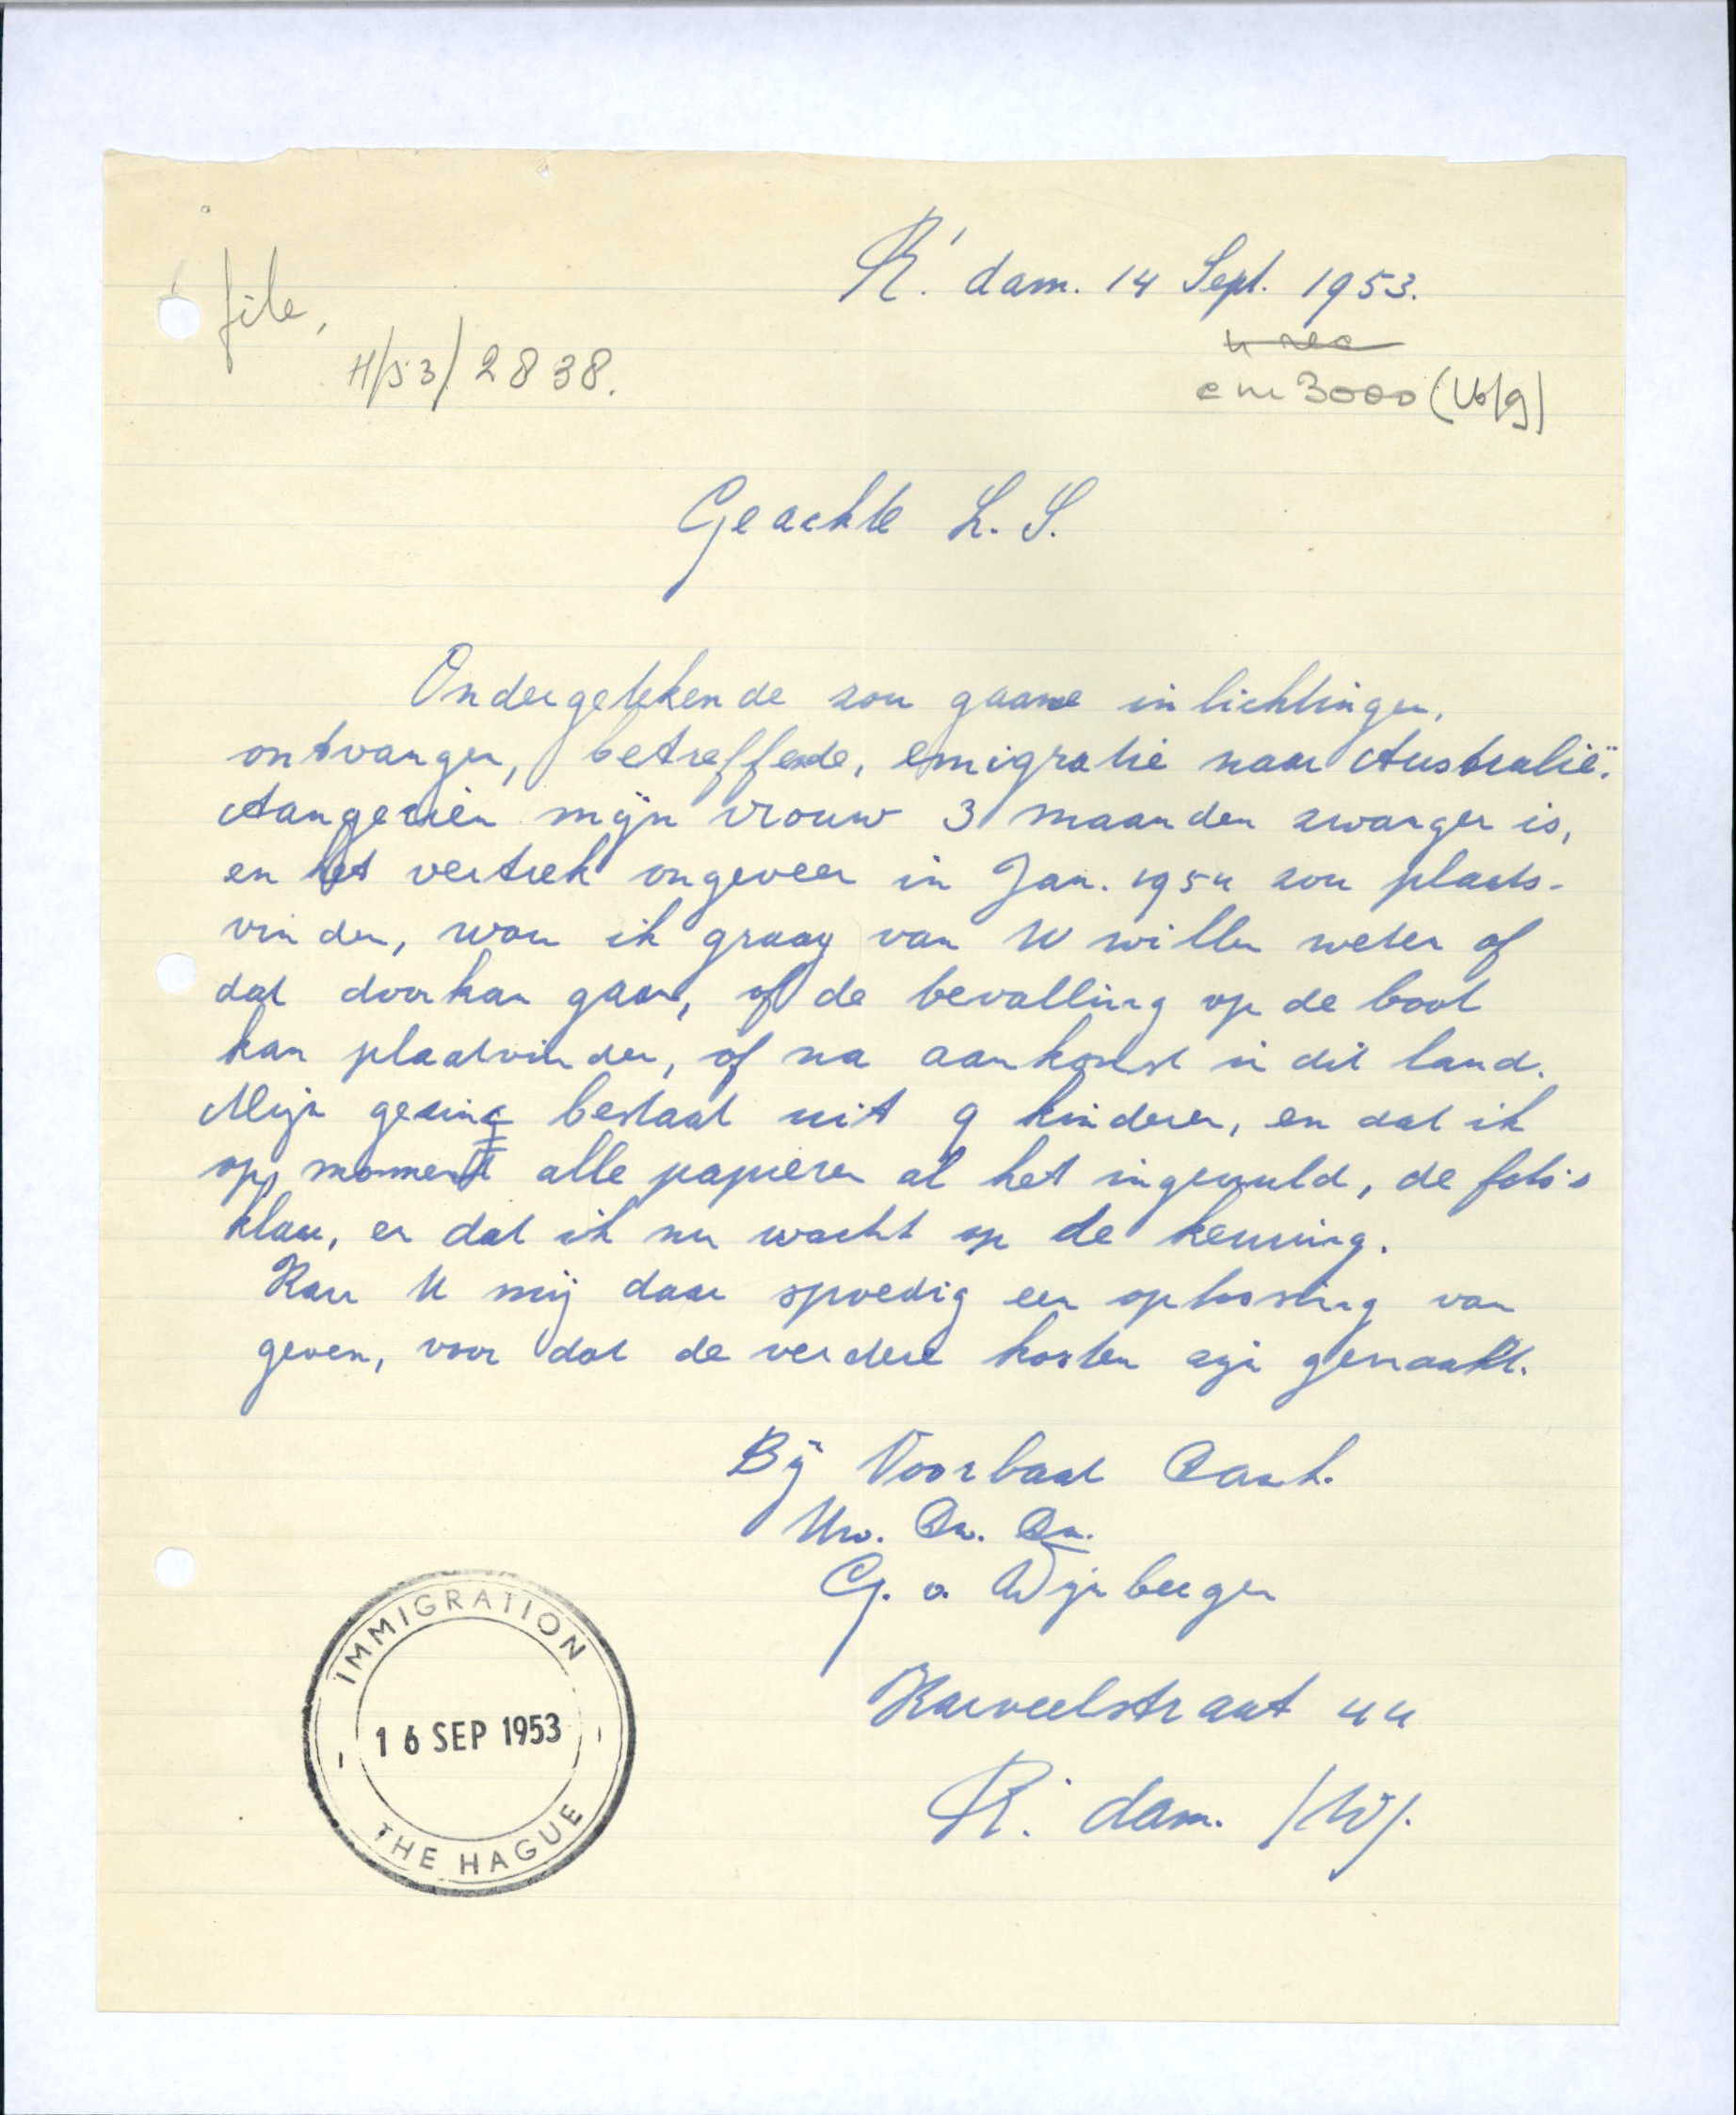 R'dam. 14 Sept. 1953.
file,
H/53/2838.
em 3000 (Vb/g)
Geachte L.S.
Ondergetekende zou gaarne inlichtingen,
ontvangen, betreffende, emigratie naar Australië.
Aangezien mijn vrouw 3 maanden zwanger is,
en het vertrek ongeveer in Jan. 1954 zou plaats-
vinden, wou ik graag van U willen weten of
dat door kan gaan, of de bevalling op de boot
kan plaatvinden, of na aankomst in dit land.
Mijn gezing bestaat uit 9 kinderen, en dat ik
op moment alle papieren al het ingevuld, de foto's
klaar, en dat ik nu wacht op de keuring.
Kan U mij daar spoedig een oplossing van
geven, voor dat de verdere kosten zijn gemaakt.
Bij Voorbaat Dank.
Uw. Dw. Dn.
G. v. Wijnbergen
Karveelstraat 44
R'dam. /W/.
IMMIGRATION
16 SEP 1953
THE HAGUE